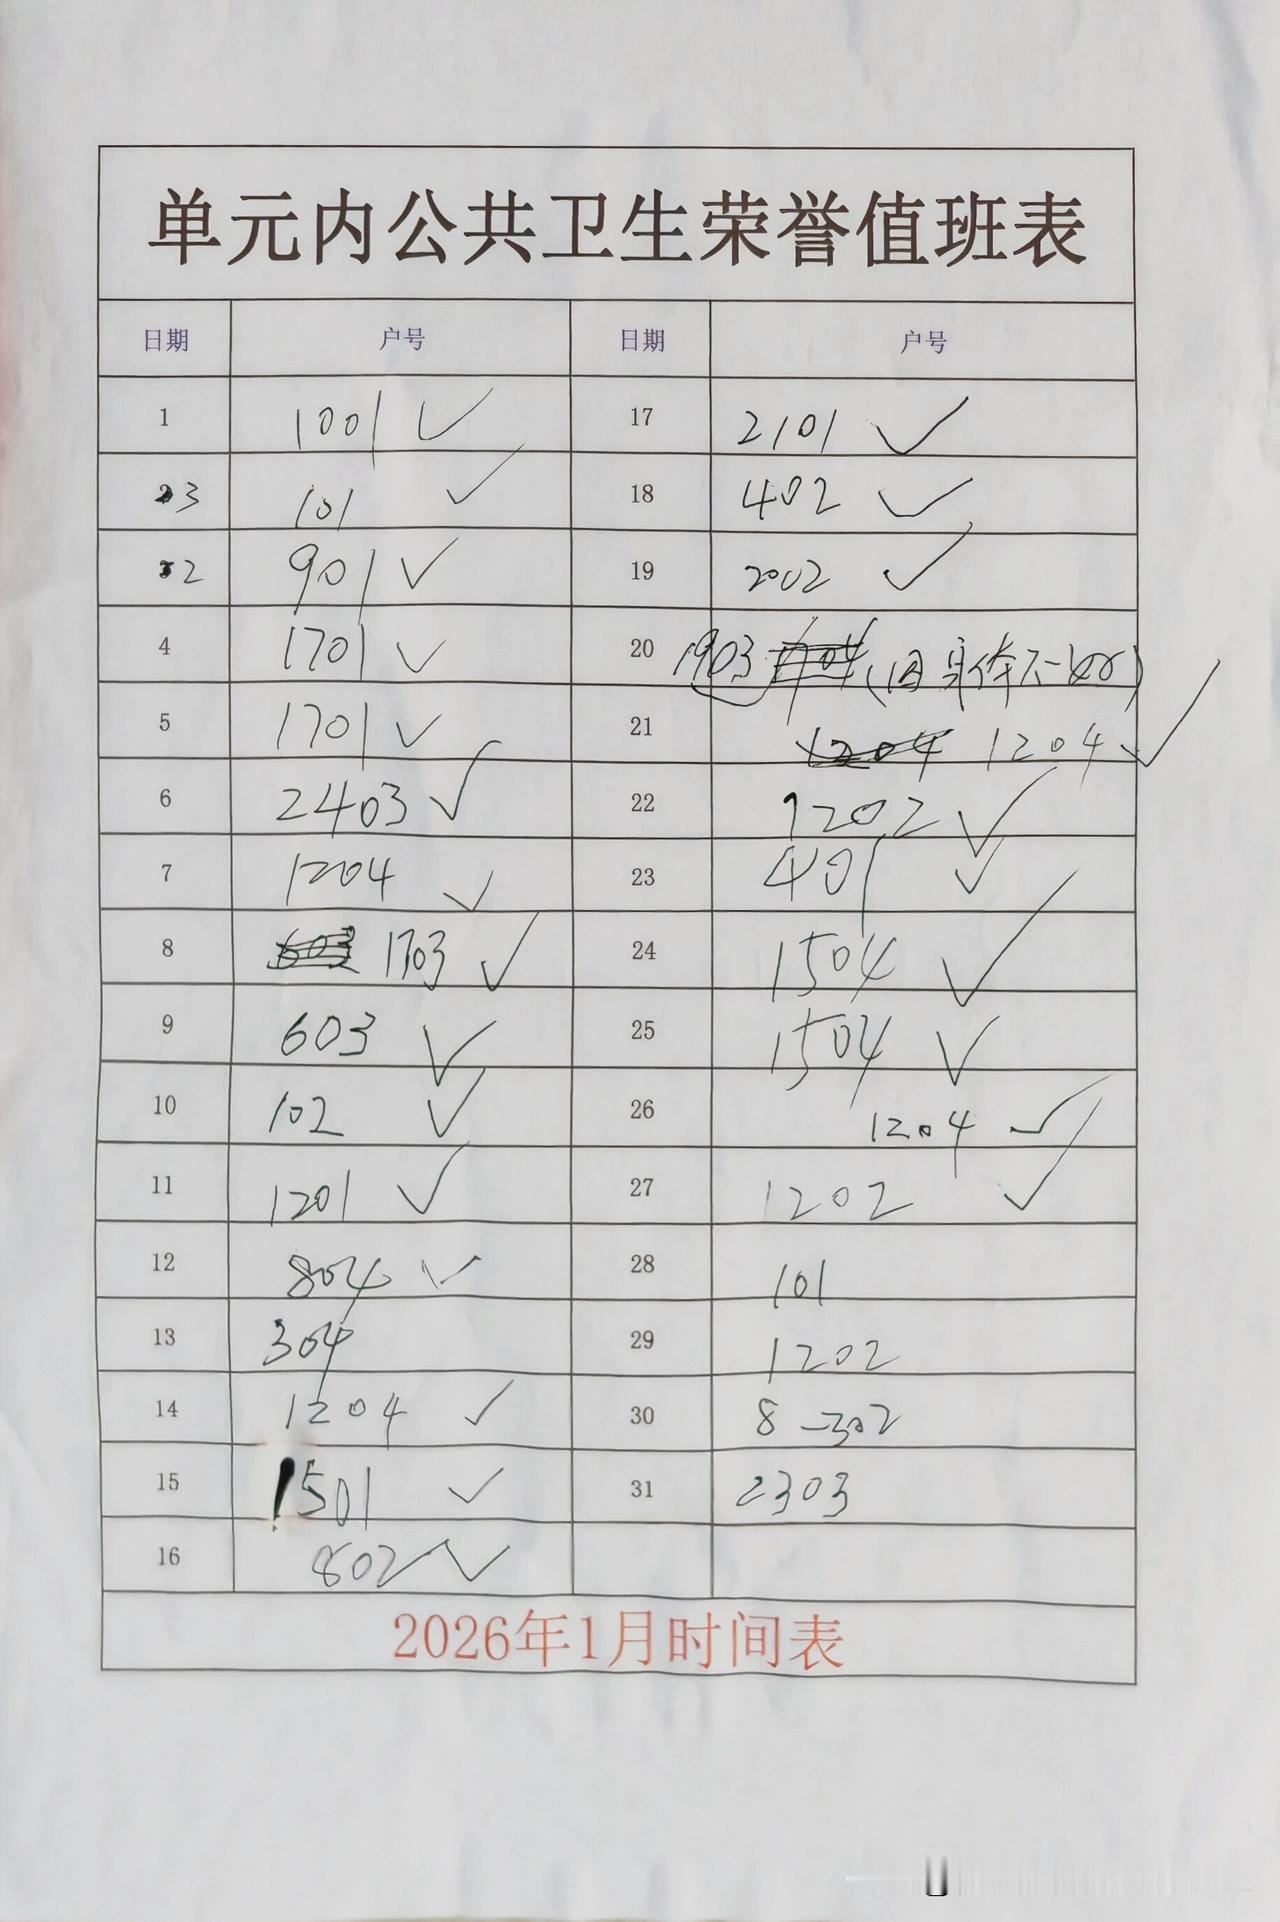 单元内公共卫生荣誉值班表
日期 户号 日期 户号
1 1001 ✓ 17 2101 ✓
3 101 ✓ 18 402 ✓
2 901 ✓ 19 2002 ✓
4 1701 ✓ 20 1903 (因身体不好)
5 1701 ✓ 21 1204 1204 ✓
6 2403 ✓ 22 1202 ✓
7 1204 ✓ 23 401 ✓
8 603 1703 ✓ 24 1504 ✓
9 603 ✓ 25 1504 ✓
10 102 ✓ 26 1204 ✓
11 1201 ✓ 27 1202 ✓
12 804 ✓ 28 101
13 304 29 1202
14 1204 ✓ 30 8-302
15 1501 ✓ 31 2303
16 802 ✓
2026年1月时间表